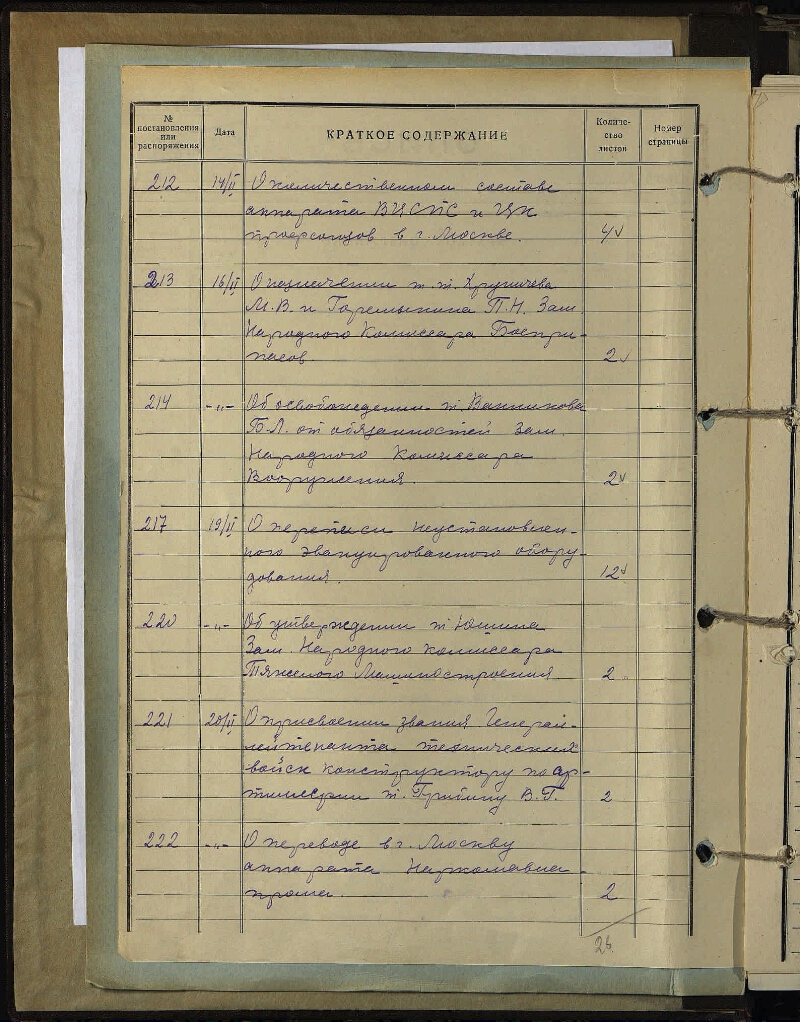 № постановления или распоряжения
Дата
КРАТКОЕ СОДЕРЖАНИЕ
Количе-
ство
листов
Номер
страницы
212 14/II О количественном составе
аппарата ВЦСПС и ЦК
профсоюзов в г. Москве. 4 ✓
213 16/II О назначении т.т. Хруничева
М.В. и Горемыкина П.Н. Зам.
Народного Комиссара Боепри-
пасов. 2 ✓
214 -„- Об освобождении т. Ванникова
Б.Л. от обязанностей Зам.
Народного Комиссара
Вооружения. 2 ✓
217 19/II О переписи неустановлен-
ного эвакуированного обору-
дования. 12 ✓
220 -„- Об утверждении т. Юшина
Зам. Народного комиссара
Тяжелого Машиностроения 2
221 20/II О присвоении звания Генерал-
лейтенанта технических
войск конструктору по ар-
тиллерии т. Грабину В.Г. 2
222 -„- О переводе в г. Москву
аппарата Наркомавиа-
прома. 2
26